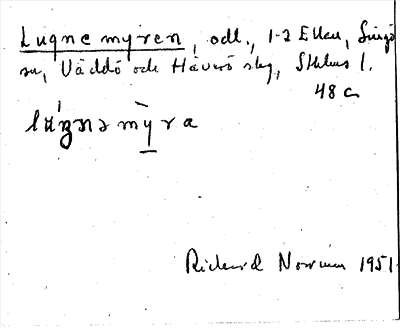 Lugnemyren, odl., 1-2 Ellan, Singö
sn, Väddö och Häverö skg, Sthlms l.
48 c
lúŋnə mỳra
Rickard Norrman 1951.